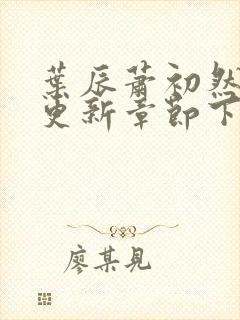 葉辰蕭初然
更新章節下
廖某見